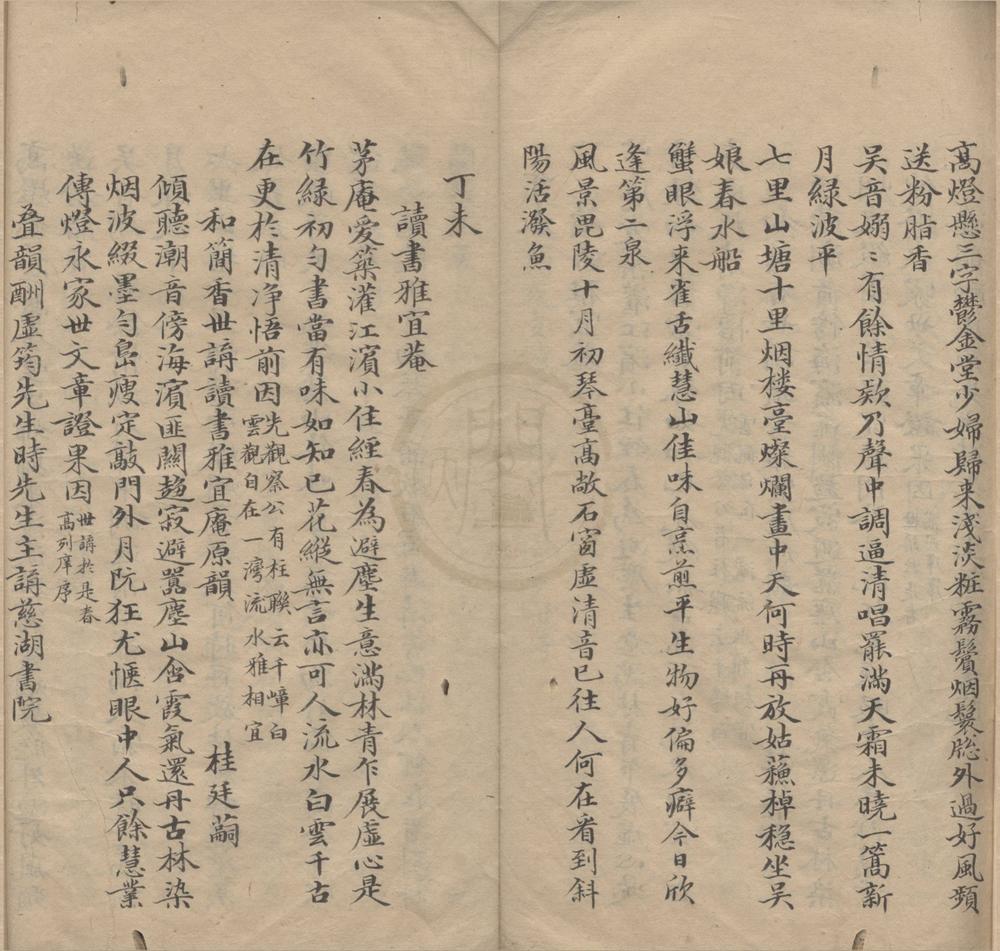 高燈懸三字鬱金堂少婦歸来淺淡粧霧鬢烟鬟牕外過好風頻
送粉脂香
吳音嫋〻有餘情欸乃聲中調逼清唱罷滿天霜未曉一篙新
月綠波平
七里山塘十里烟楼臺燦爛畫中天何時再放姑蘓棹穏坐吴
娘春水船
蟹眼浮来雀舌纖慧山佳味自烹煎平生物好偏多癖今日欣
逢第二泉
風景毘陵十月初琴臺高敞石窗虛清音已往人何在看到斜
陽活潑魚
丁未
讀書雅宜菴
茅庵愛築灌江濱小住經春為避塵生意滿林青乍展虛心是
竹綠初勻書當有味如知已花縱無言亦可人流水白雲千古
在更於清净悟前因先觀察公有柱聯云千嶂白雲觀自在一灣流水雅相宜
和簡香世講讀書雅宜庵原韻 桂廷嗣
傾聽潮音傍海濱匪關趨寂避囂塵山含霞氣還丹古林染
烟波綴墨勻島瘦定敲門外月阮狂尤愜眼中人只餘慧業
傳燈永家世文章證果因世講於是春高列庠序
叠韻酬虛筠先生時先生主講慈湖書院